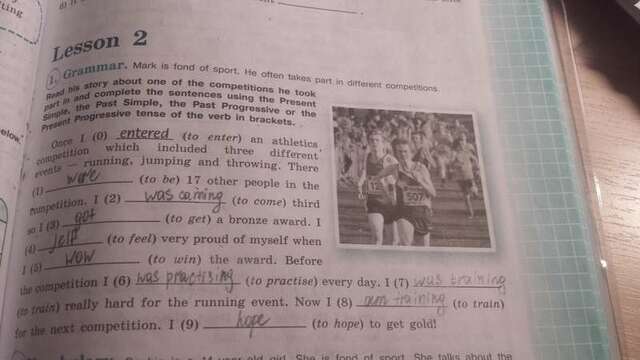 Lesson 2
1 Grammar. Mark is fond of sport. He often takes part in different competitions.
Read his story about one of the competitions he took
part in and complete the sentences using the Present
Simple, the Past Simple, the Past Progressive or the
Present Progressive tense of the verb in brackets.
Once I (0) entered (to enter) an athletics
competition which included three different
events – running, jumping and throwing. There
(1) were (to be) 17 other people in the
competition. I (2) was coming (to come) third
so I (3) got (to get) a bronze award. I
(4) feld (to feel) very proud of myself when
I (5) wow (to win) the award. Before
the competition I (6) was practising (to practise) every day. I (7) was training
(to train) really hard for the running event. Now I (8) am training (to train)
for the next competition. I (9) hope (to hope) to get gold!
year-old girl. She is fond of sport. She talks about the